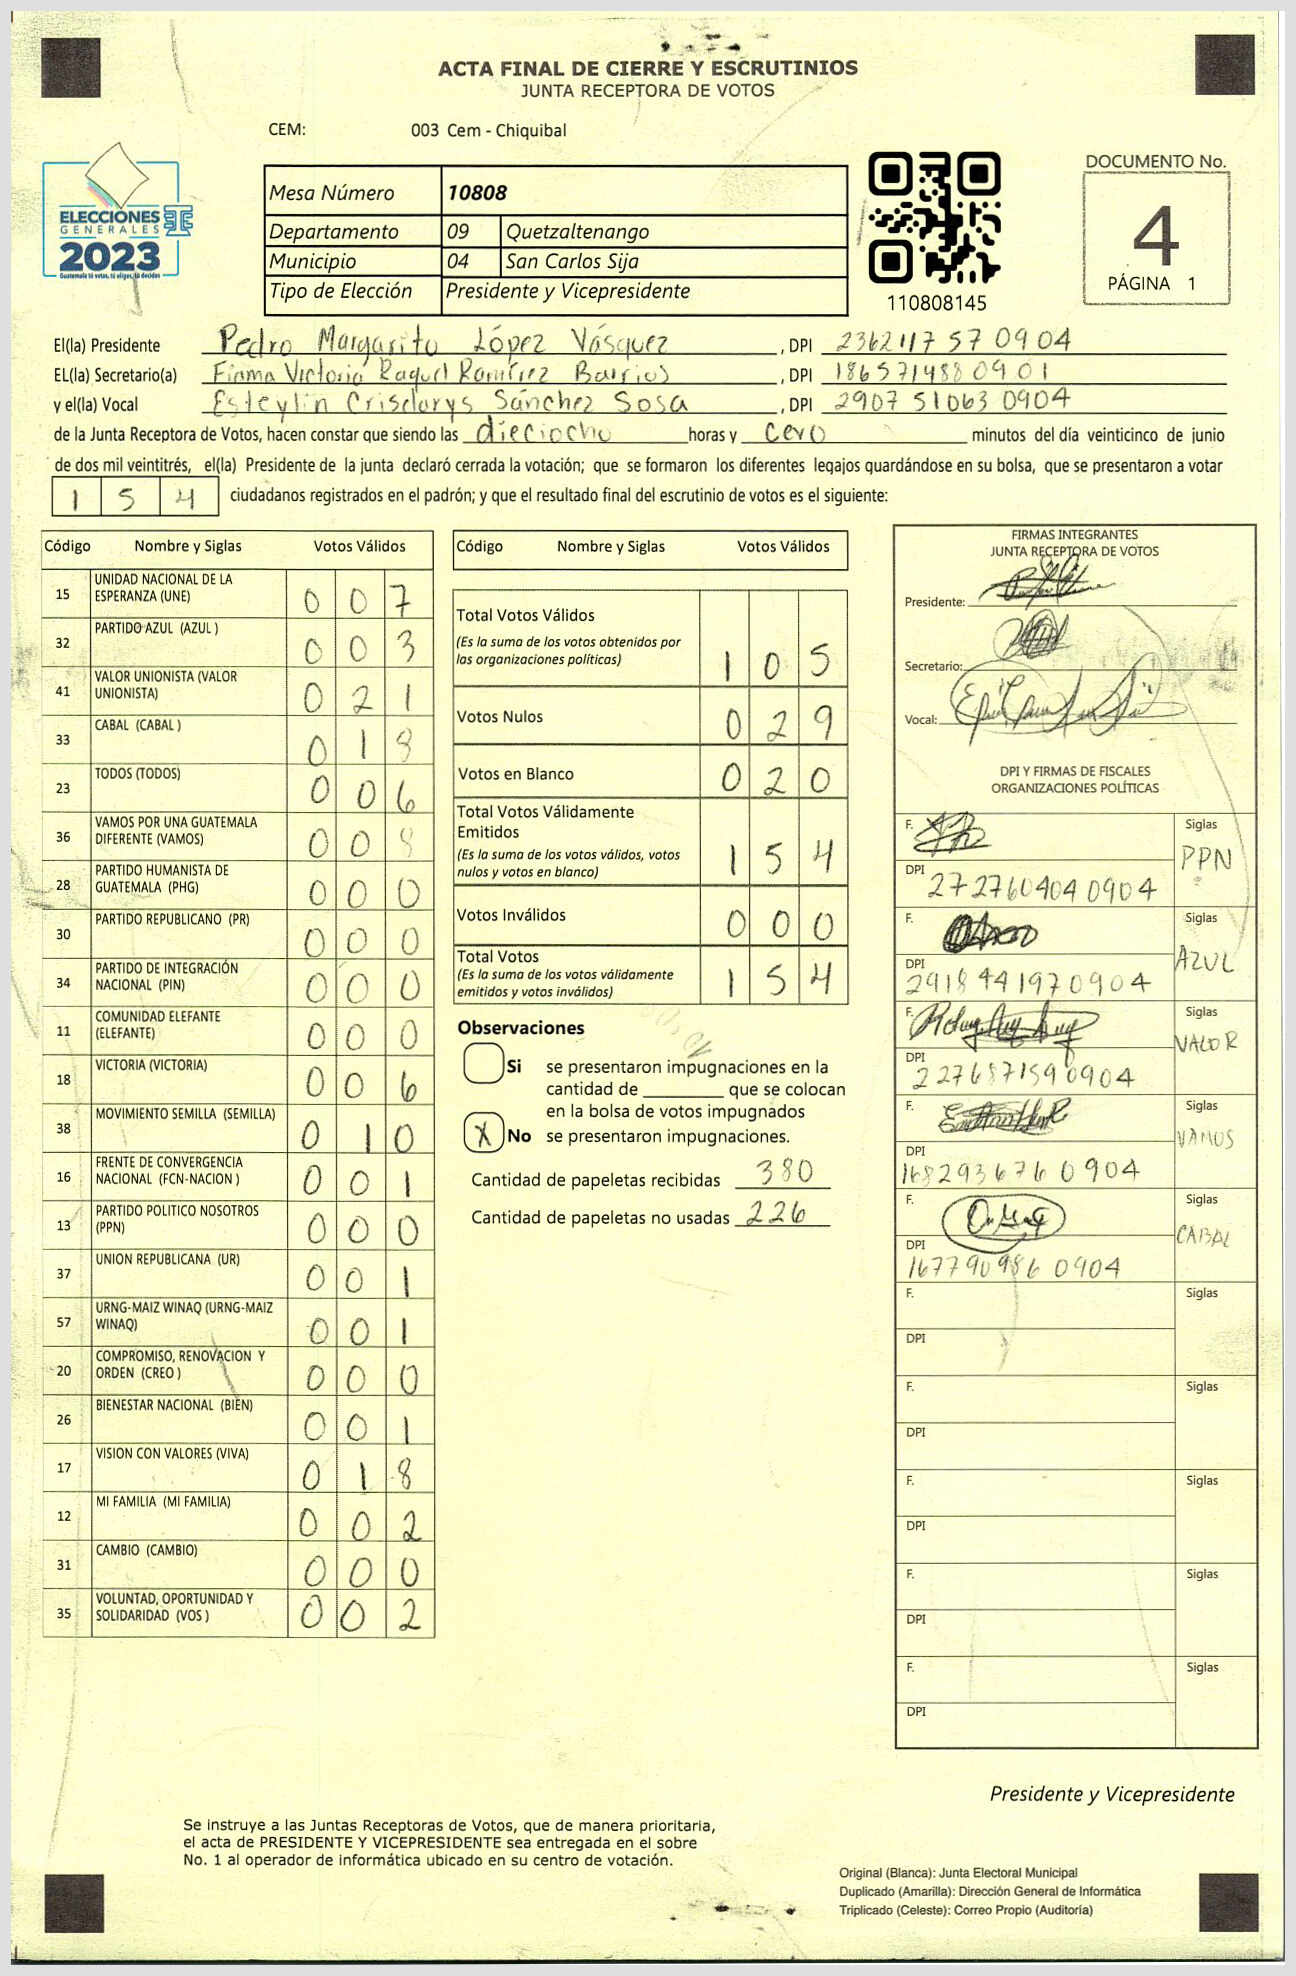 ACTA FINAL DE CIERRE Y ESCRUTINIOS
JUNTA RECEPTORA DE VOTOS
CEM: 003 Cem - Chiquibal
ELECCIONES
GENERALES
2023
Guatemala tú votas, tú eliges, tú decides
Mesa Número 10808
Departamento 09 Quetzaltenango
Municipio 04 San Carlos Sija
Tipo de Elección Presidente y Vicepresidente
110808145
DOCUMENTO No.
4
PÁGINA 1
El(la) Presidente Pedro Margarito López Vásquez , DPI 2362117570904
EL(la) Secretario(a) Victoria Raquel Ramírez Barrios , DPI 1865714880901
y el(la) Vocal Esteylin Crisdarys Sánchez Sosa , DPI 2907510630904
de la Junta Receptora de Votos, hacen constar que siendo las dieciocho horas y cero minutos del día veinticinco de junio
de dos mil veintitrés, el(la) Presidente de la junta declaró cerrada la votación; que se formaron los diferentes legajos guardándose en su bolsa, que se presentaron a votar
1 5 4 ciudadanos registrados en el padrón; y que el resultado final del escrutinio de votos es el siguiente:
Código Nombre y Siglas Votos Válidos
15 UNIDAD NACIONAL DE LA ESPERANZA (UNE) 0 0 7
32 PARTIDO AZUL (AZUL ) 0 0 3
41 VALOR UNIONISTA (VALOR UNIONISTA) 0 2 1
33 CABAL (CABAL ) 0 1 8
23 TODOS (TODOS) 0 0 6
36 VAMOS POR UNA GUATEMALA DIFERENTE (VAMOS) 0 0 8
28 PARTIDO HUMANISTA DE GUATEMALA (PHG) 0 0 0
30 PARTIDO REPUBLICANO (PR) 0 0 0
34 PARTIDO DE INTEGRACIÓN NACIONAL (PIN) 0 0 0
11 COMUNIDAD ELEFANTE (ELEFANTE) 0 0 0
18 VICTORIA (VICTORIA) 0 0 6
38 MOVIMIENTO SEMILLA (SEMILLA) 0 1 0
16 FRENTE DE CONVERGENCIA NACIONAL (FCN-NACION ) 0 0 1
13 PARTIDO POLITICO NOSOTROS (PPN) 0 0 0
37 UNION REPUBLICANA (UR) 0 0 1
57 URNG-MAIZ WINAQ (URNG-MAIZ WINAQ) 0 0 1
20 COMPROMISO, RENOVACION Y ORDEN (CREO ) 0 0 0
26 BIENESTAR NACIONAL (BIEN) 0 0 1
17 VISION CON VALORES (VIVA) 0 1 8
12 MI FAMILIA (MI FAMILIA) 0 0 2
31 CAMBIO (CAMBIO) 0 0 0
35 VOLUNTAD, OPORTUNIDAD Y SOLIDARIDAD (VOS ) 0 0 2
Código Nombre y Siglas Votos Válidos
Total Votos Válidos
(Es la suma de los votos obtenidos por
las organizaciones políticas) 1 0 5
Votos Nulos 0 2 9
Votos en Blanco 0 2 0
Total Votos Válidamente
Emitidos
(Es la suma de los votos válidos, votos
nulos y votos en blanco) 1 5 4
Votos Inválidos 0 0 0
Total Votos
(Es la suma de los votos válidamente
emitidos y votos inválidos) 1 5 4
Observaciones
Si se presentaron impugnaciones en la
cantidad de ________ que se colocan
en la bolsa de votos impugnados
X No se presentaron impugnaciones.
Cantidad de papeletas recibidas 380
Cantidad de papeletas no usadas 226
FIRMAS INTEGRANTES
JUNTA RECEPTORA DE VOTOS
Presidente:
Secretario:
Vocal:
DPI Y FIRMAS DE FISCALES
ORGANIZACIONES POLÍTICAS
F. Siglas
PPN
DPI 2727604040904
F. Siglas
AZUL
DPI 2918441970904
F. Siglas
VALOR
DPI 2276871590904
F. Siglas
VAMOS
DPI 1682936760904
F. Siglas
CABAL
DPI 1677909860904
F. Siglas
DPI
F. Siglas
DPI
F. Siglas
DPI
F. Siglas
DPI
F. Siglas
DPI
Presidente y Vicepresidente
Se instruye a las Juntas Receptoras de Votos, que de manera prioritaria,
el acta de PRESIDENTE Y VICEPRESIDENTE sea entregada en el sobre
No. 1 al operador de informática ubicado en su centro de votación.
Original (Blanca): Junta Electoral Municipal
Duplicado (Amarilla): Dirección General de Informática
Triplicado (Celeste): Correo Propio (Auditoría)